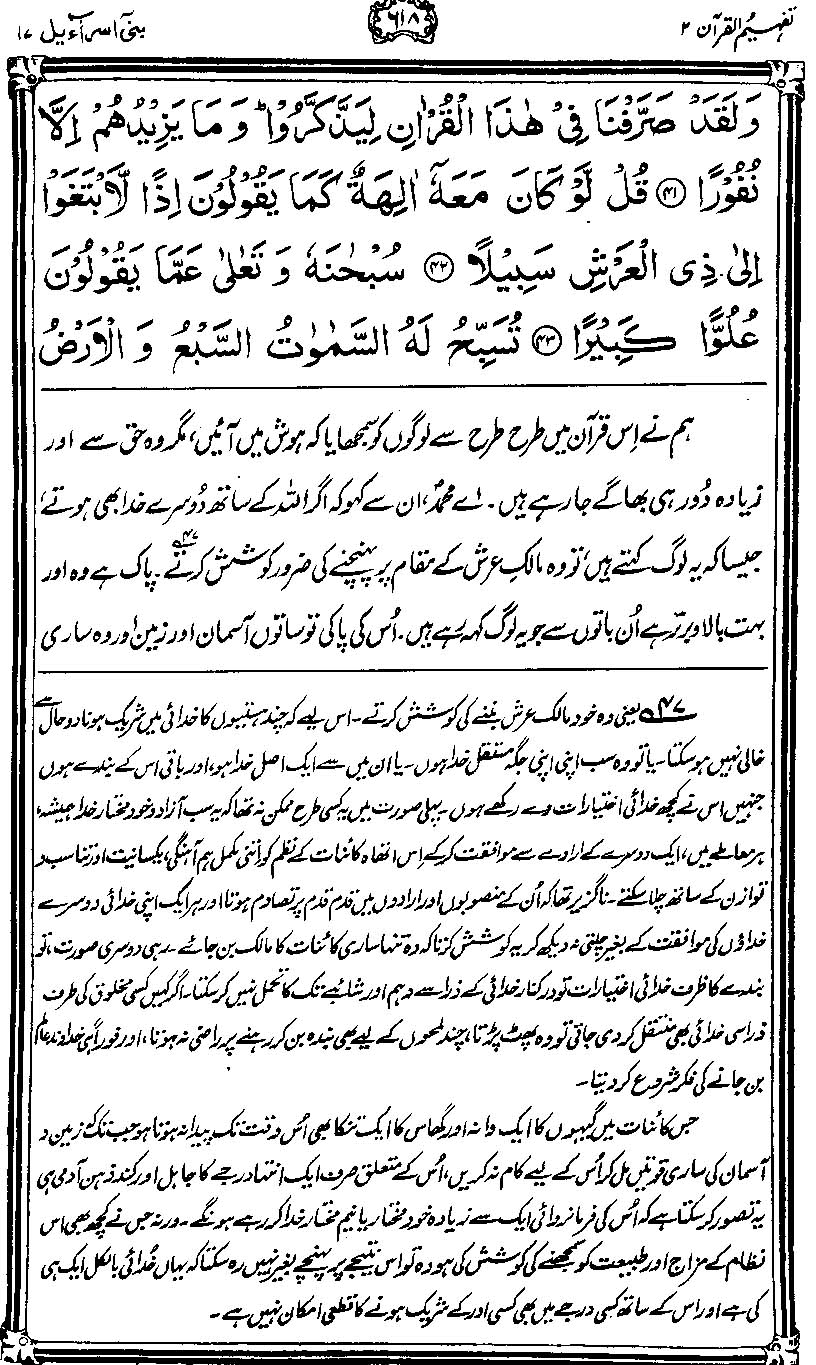 تفہیم القرآن ۲
۶۱۸
بنی اسرآءیل ۱۷
وَلَقَدْ صَرَّفْنَا فِیْ هٰذَا الْقُرْاٰنِ لِیَذَّكَّرُوْا ؕ وَ مَا یَزِیْدُهُمْ اِلَّا
نُفُوْرًا ﴿۴۱﴾ قُلْ لَّوْ كَانَ مَعَهٗۤ اٰلِهَةٌ كَمَا یَقُوْلُوْنَ اِذًا لَّابْتَغَوْا
اِلٰی ذِی الْعَرْشِ سَبِیْلًا ﴿۴۲﴾ سُبْحٰنَهٗ وَ تَعٰلٰی عَمَّا یَقُوْلُوْنَ
عُلُوًّا كَبِیْرًا ﴿۴۳﴾ تُسَبِّحُ لَهُ السَّمٰوٰتُ السَّبْعُ وَ الْاَرْضُ
ہم نے اِس قرآن میں طرح طرح سے لوگوں کو سمجھایا کہ ہوش میں آئیں، مگر وہ حق سے اور
زیادہ دُور ہی بھاگے جا رہے ہیں۔ اے محمدؐ، ان سے کہو کہ اگر اللہ کے ساتھ دُوسرے خدا بھی ہوتے،
جیسا کہ یہ لوگ کہتے ہیں، تو وہ مالکِ عرش کے مقام پر پہنچنے کی ضرور کوشش کرتے۴۷۔ پاک ہے وہ اور
بہت بالا و برتر ہے اُن باتوں سے جو یہ لوگ کہہ رہے ہیں۔ اُس کی پاکی تو ساتوں آسمان اور زمین اور وہ ساری
۴۷ یعنی وہ خود مالک عرش بننے کی کوشش کرتے۔ اس لیے کہ چند ہستیوں کا خدائی میں شریک ہونا دو حال سے
خالی نہیں ہو سکتا۔ یا تو وہ سب اپنی اپنی جگہ مستقل خدا ہوں۔ یا ان میں سے ایک اصل خدا ہو، اور باقی اس کے بندے ہوں
جنہیں اس نے کچھ خدائی اختیارات دے رکھے ہوں۔ پہلی صورت میں یہ کسی طرح ممکن نہ تھا کہ یہ سب آزاد و خود مختار خدا ہمیشہ،
ہر معاملے میں، ایک دوسرے کے ارادے سے موافقت کر کے اِس اتھاہ کائنات کے نظم کو اتنی مکمل ہم آہنگی، یکسانیت اور تناسب و
توازن کے ساتھ چلا سکتے۔ ناگزیر تھا کہ اُن کے منصوبوں اور ارادوں میں قدم قدم پر تصادم ہوتا اور ہر ایک اپنی خدائی دوسرے
خداؤں کی موافقت کے بغیر چلتی نہ دیکھ کر یہ کوشش کرتا کہ وہ تنہا ساری کائنات کا مالک بن جائے۔ رہی دوسری صورت، تو
بندے کا ظرف خدائی اختیارات تو درکنار خدائی کے ذرا سے وہم اور شائبے تک کا تحمل نہیں کر سکتا۔ اگر کہیں کسی مخلوق کی طرف
ذرا سی خدائی بھی منتقل کر دی جاتی تو وہ پھٹ پڑتا، چند لمحوں کے لیے بھی بندہ بن کر رہنے پر راضی نہ ہوتا، اور فوراً ہی خداوندِ عالم
بن جانے کی فکر شروع کر دیتا۔
جس کائنات میں گیہوں کا ایک دانہ اور گھاس کا ایک تنکا بھی اُس وقت تک پیدا نہ ہوتا ہو جب تک کہ زمین و
آسمان کی ساری قوتیں مل کر اُس کے لیے کام نہ کریں، اُس کے متعلق صرف ایک انتہا درجے کا جاہل اور کند ذہن آدمی ہی
یہ تصور کر سکتا ہے کہ اُس کی فرمانروائی ایک سے زیادہ خود مختار یا نیم مختار خدا کر رہے ہونگے۔ ورنہ جس نے کچھ بھی اس
نظام کے مزاج اور طبیعت کو سمجھنے کی کوشش کی ہو وہ تو اس نتیجے پر پہنچے بغیر نہیں رہ سکتا کہ یہاں خدائی بالکل ایک ہی
کی ہے اور اس کے ساتھ کسی درجے میں بھی کسی اور کے شریک ہونے کا قطعی امکان نہیں ہے۔